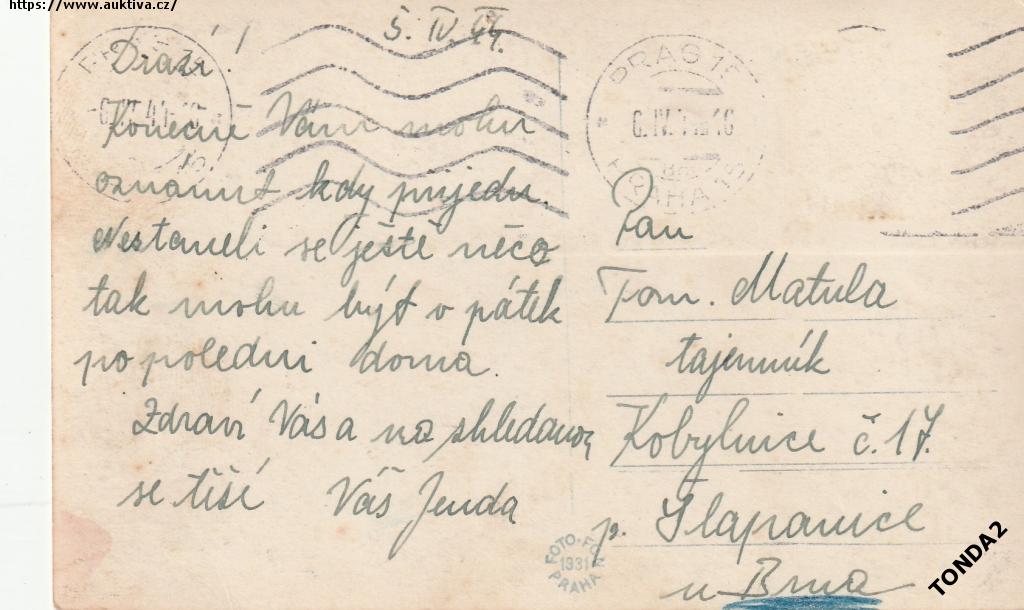 https://www.auktiva.cz/
5. IV. 44.
Drazí!
Konečně Vám mohu
oznámit kdy přijedu.
Nestaneli se ještě něco
tak mohu být v pátek
po poledni doma.
Zdraví Vás a na shledanou
se těší Váš Jenda
PRAG 15
6. IV. 4
PRAHA 15
Pan
Tom. Matula
tajemník
Kobylnice č. 17.
p. Šlapanice
u Brna
FOTO-FON
1931
PRAHA
TONDA2